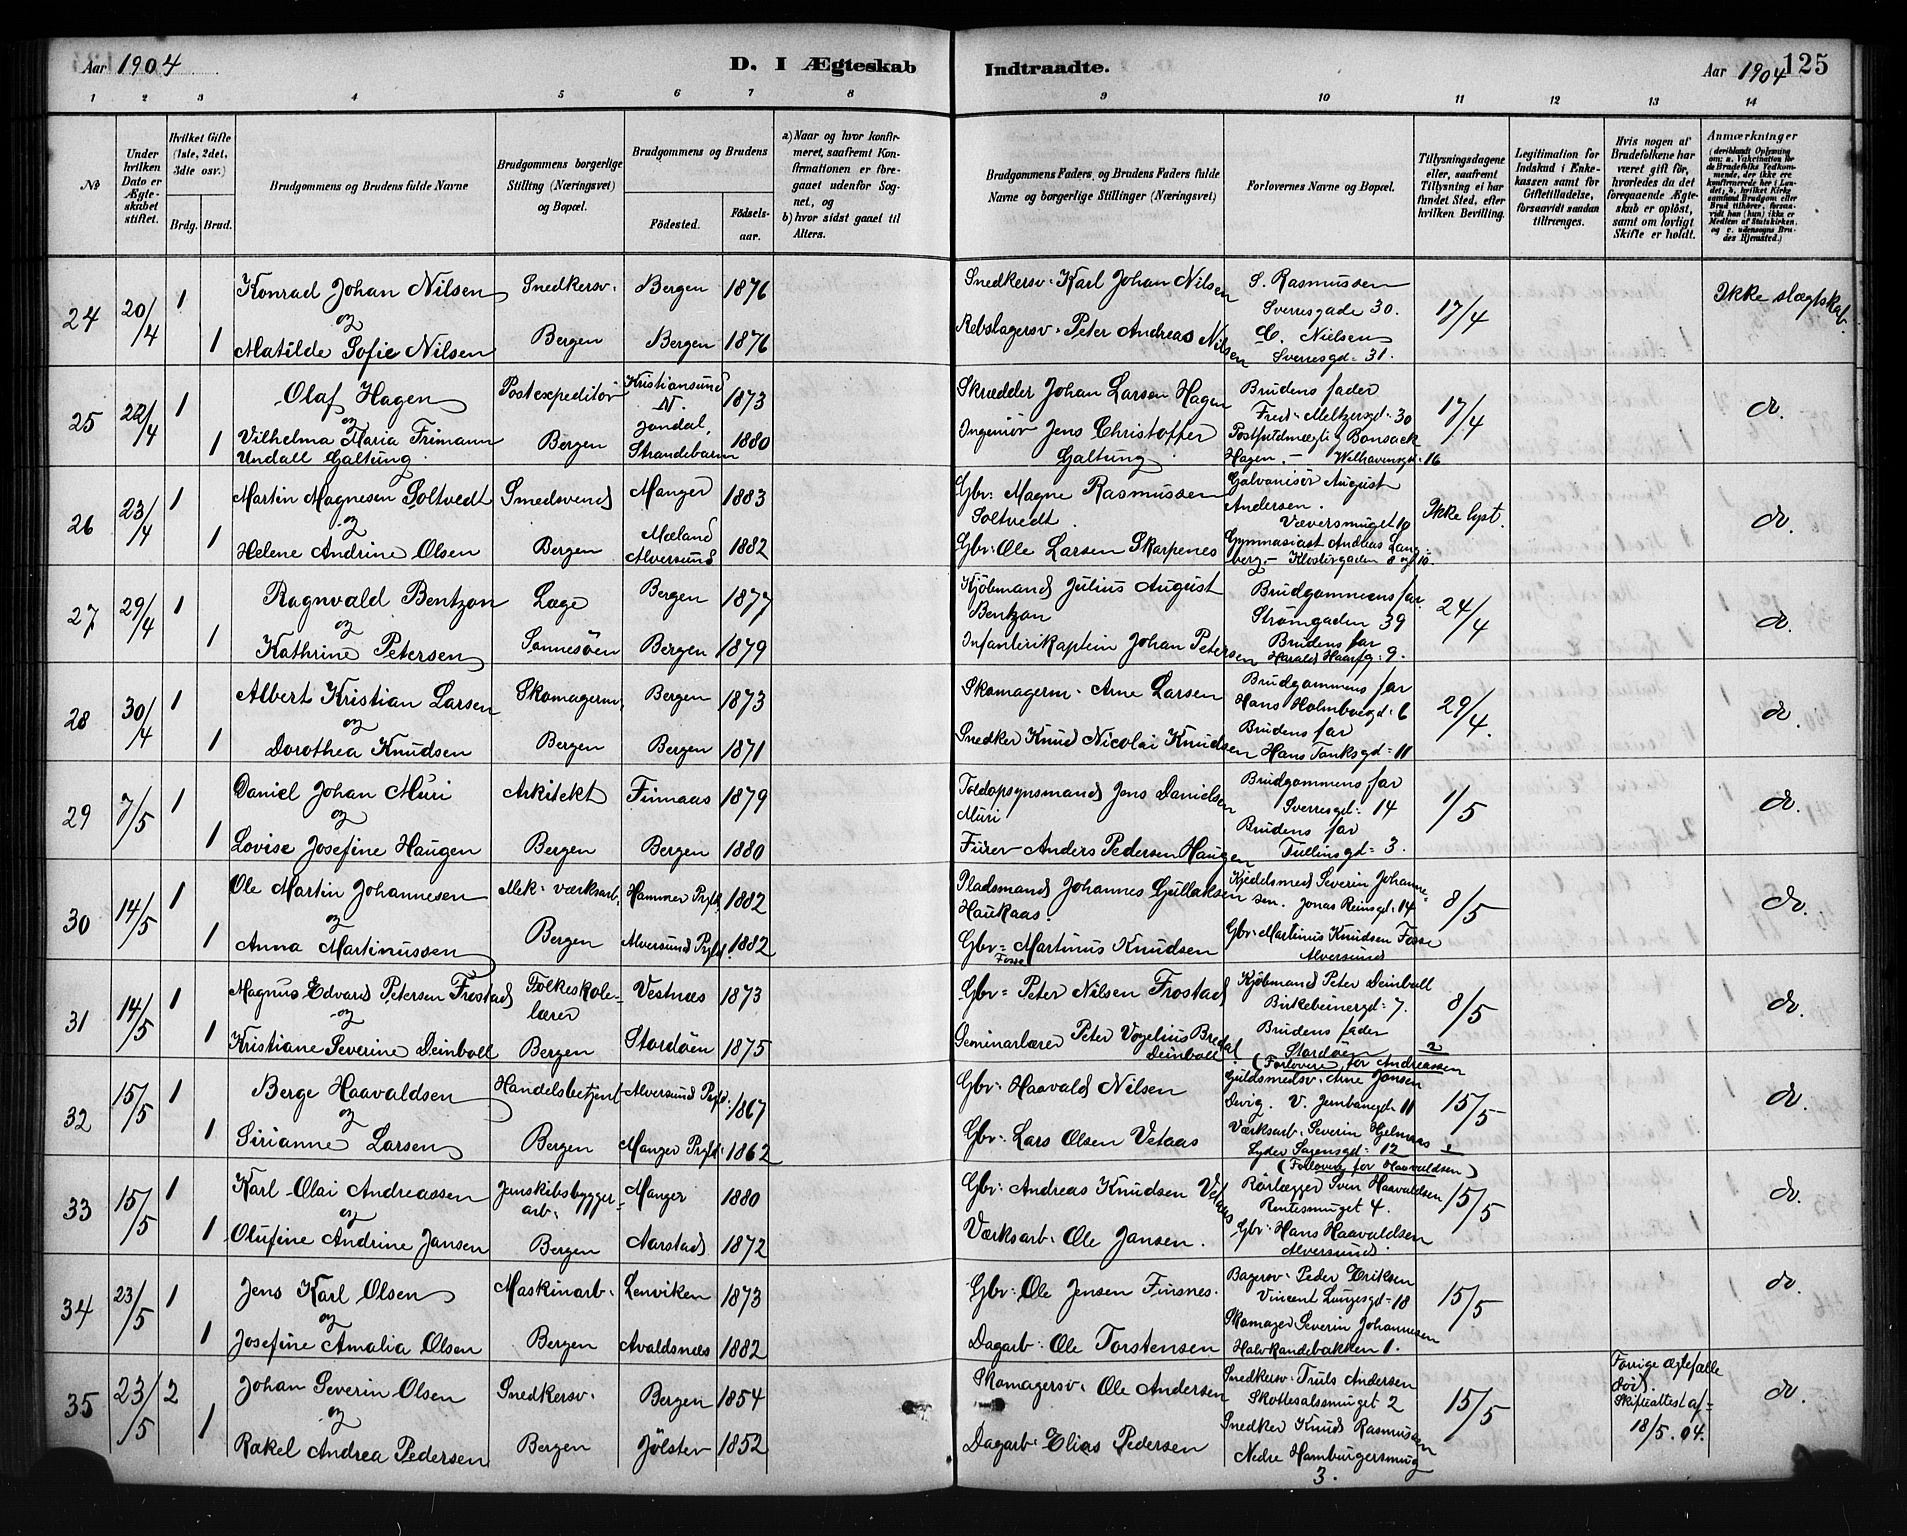 Aar 1904
D. I Ægteskab
Indtraadte.
Aar 1904
125
1 2 3 4 5 6 7 8 9 10 11 12 13 14
№
Under hvilken Dato er Ægteskabet stiftet.
Hvilket Gifte (1ste, 2det, 3die osv.)
Brdg. Brud.
Brudgommens og Brudens fulde Navne
Brudgommens borgerlige Stilling (Næringsvei) og Bopæl.
Brudgommens og Brudens
Fødested.
Fødselsaar.
a) Naar og hvor konfirmeret, saafremt Konfirmationen er foregaaet udenfor Sognet, og
b) hvor sidst gaaet til Alters.
Brudgommens Faders og Brudens Faders fulde Navne og borgerlige Stillinger (Næringsvei)
Forlovernes Navne og Bopæl.
Tillysningsdagene eller, saafremt Tillysning ei har fundet Sted, efter hvilken Bevilling.
Legitimation for Indskud i Enkekassen samt for Giftetilladelse, forsaavidt saadan tiltrænges.
Hvis nogen af Brudefolkene har været gift før, hvorledes da det foregaaende Ægteskab er opløst, samt om lovligt Skifte er holdt.
Anmærkninger
24 20/4 1 Konrad Johan Nilsen Snedkersv. Bergen 1876 Snedkersv. Karl Johan Nilsen S. Rasmussen Sverresgade 30. 17/4 Ikke slægtskab.
og
1 Matilde Sofie Nilsen Bergen Bergen 1876 Rebslagersv. Peter Andreas Nilsen C. Nielsen Sverresgd. 31.
25 22/4 1 Olaf Hagen Postexpeditør Kristiansund N. 1873 Skrædder Johan Larsen Hagen Brudens fader Fred. Meltzersgd. 30 17/4 do.
og
1 Vilhelma Maria Frimann Undall Galtung. Bergen Jondal, Strandebarm 1880 Ingeniør Jens Christoffer Galtung Postfuldmægtig Bonsack Hagen. — Welhavensgd. 16
26 23/4 1 Martin Magnesen Soltvedt Smedsvend Manger 1883 Gbr. Magne Rasmussen Soltvedt. Galvanisør August Andersen. Væversmuget 10 Ikke lyst. do.
og
1 Helene Andrine Olsen Bergen Mæland Alversund 1882 Gbr. Ole Larsen Skarpenes Gymnasiast Andreas Langberg. — Klostergaden 8 og 10.
27 29/4 1 Ragnvald Bentzon Læge Bergen 1877 Kjøbmand Julius August Bentzon Brudgommens far Strømgaden 39 24/4 do.
og
1 Kathrine Petersen Sannesøen Bergen 1879 Infanterikaptein Johan Petersen Brudens far Harald Haarfg. 9.
28 30/4 1 Albert Kristian Larsen Skomagerm. Bergen 1873 Skomagerm. Arne Larsen Brudgommens far Hans Holmboegd. 6 29/4. do.
og
1 Dorothea Knudsen Bergen Bergen 1871 Snedker Knud Nicolai Knudsen Brudens far Hans Tanksgd. 11
29 7/5 1 Daniel Johan Muri Arkitekt Finnaas 1879 Toldopsynsmand Jens Danielsen Muri Brudgommens far Sverresgd. 14 1/5 do.
og
1 Lovise Josefine Haugen Bergen Bergen 1880 Furer Anders Pedersen Haugen Brudens far Tullinsgd. 3.
30 14/5 1 Ole Martin Johannesen Mek. værksarb. Hammer Prgld. 1882 Pladsmand Johannes Gullaksen Haukaas. Kjedelsmed Severin Johannesen. Jonas Reinsgd. 14 8/5 do.
og
1 Anna Martinussen Bergen Alversund Prgld. 1882 Gbr. Martinus Knudsen Fosse Gbr. Martinus Knudsen Fosse Alversund
31 14/5 1 Magnus Edvard Petersen Frostad Folkeskolelærer Vestnæs 1873 Gbr. Peter Nilsen Frostad Kjøbmand Peter Deinboll Birkebeinergd. 7. 8/5 do.
og
1 Kristiane Severine Deinboll Bergen Stordøen 1875 Seminarlærer Peter Vogelius Bredal Deinboll Brudens fader Stordøen
(Forlovere for Andreassen 2
32 15/5 1 Berge Haavaldsen Handelsbetjent Alversund Prgld. 1867 Gbr. Haavald Nilsen Guldsmedsv. Arne Jansen Devig. V. Jernbanegd. 11 15/5 do.
og
1 Sirianne Larsen Bergen Manger Prgld. 1862 Gbr. Lars Olsen Vetaas Værksarb. Severin Hjelmaas Lyder Sagensgd. 12
(Forlovere for Haavaldsen)
33 15/5 1 Karl Olai Andreassen Jernskibsbyggerarb. Manger 1880 Gbr. Andreas Knudsen Vetaas Rørlægger Sven Haavaldsen Rentesmuget 4. 15/5 do.
og
1 Olufine Andrine Jansen Bergen Aarstad 1872 Værksarb. Ole Jansen. Gbr. Hans Haavaldsen Alversund.
34 23/5 1 Jens Karl Olsen Maskinarb. Lenviken 1873 Gbr. Ole Jensen Finsnes. Bagersv. Peder Eriksen Vincent Lungesgd. 18 15/5 do.
og
1 Josefine Amalia Olsen Bergen Avaldsnæs 1882 Dagarb. Ole Torstensen Skomager Severin Johannesen Halvkandebakken 1.
35 23/5 2 Johan Severin Olsen Snedkersv. Bergen 1854 Skomagersv. Ole Andersen Snedkersv. Truls Andersen Skottesalssmuget 2 15/5 Forrige ægtefælle død. Skifteattest af 18/5.04. do.
og
1 Rakel Andrea Pedersen Bergen Jølster 1852 Dagarb. Elias Pedersen Snedker Knud Rasmussen Nedre Hamburgersmug 3.